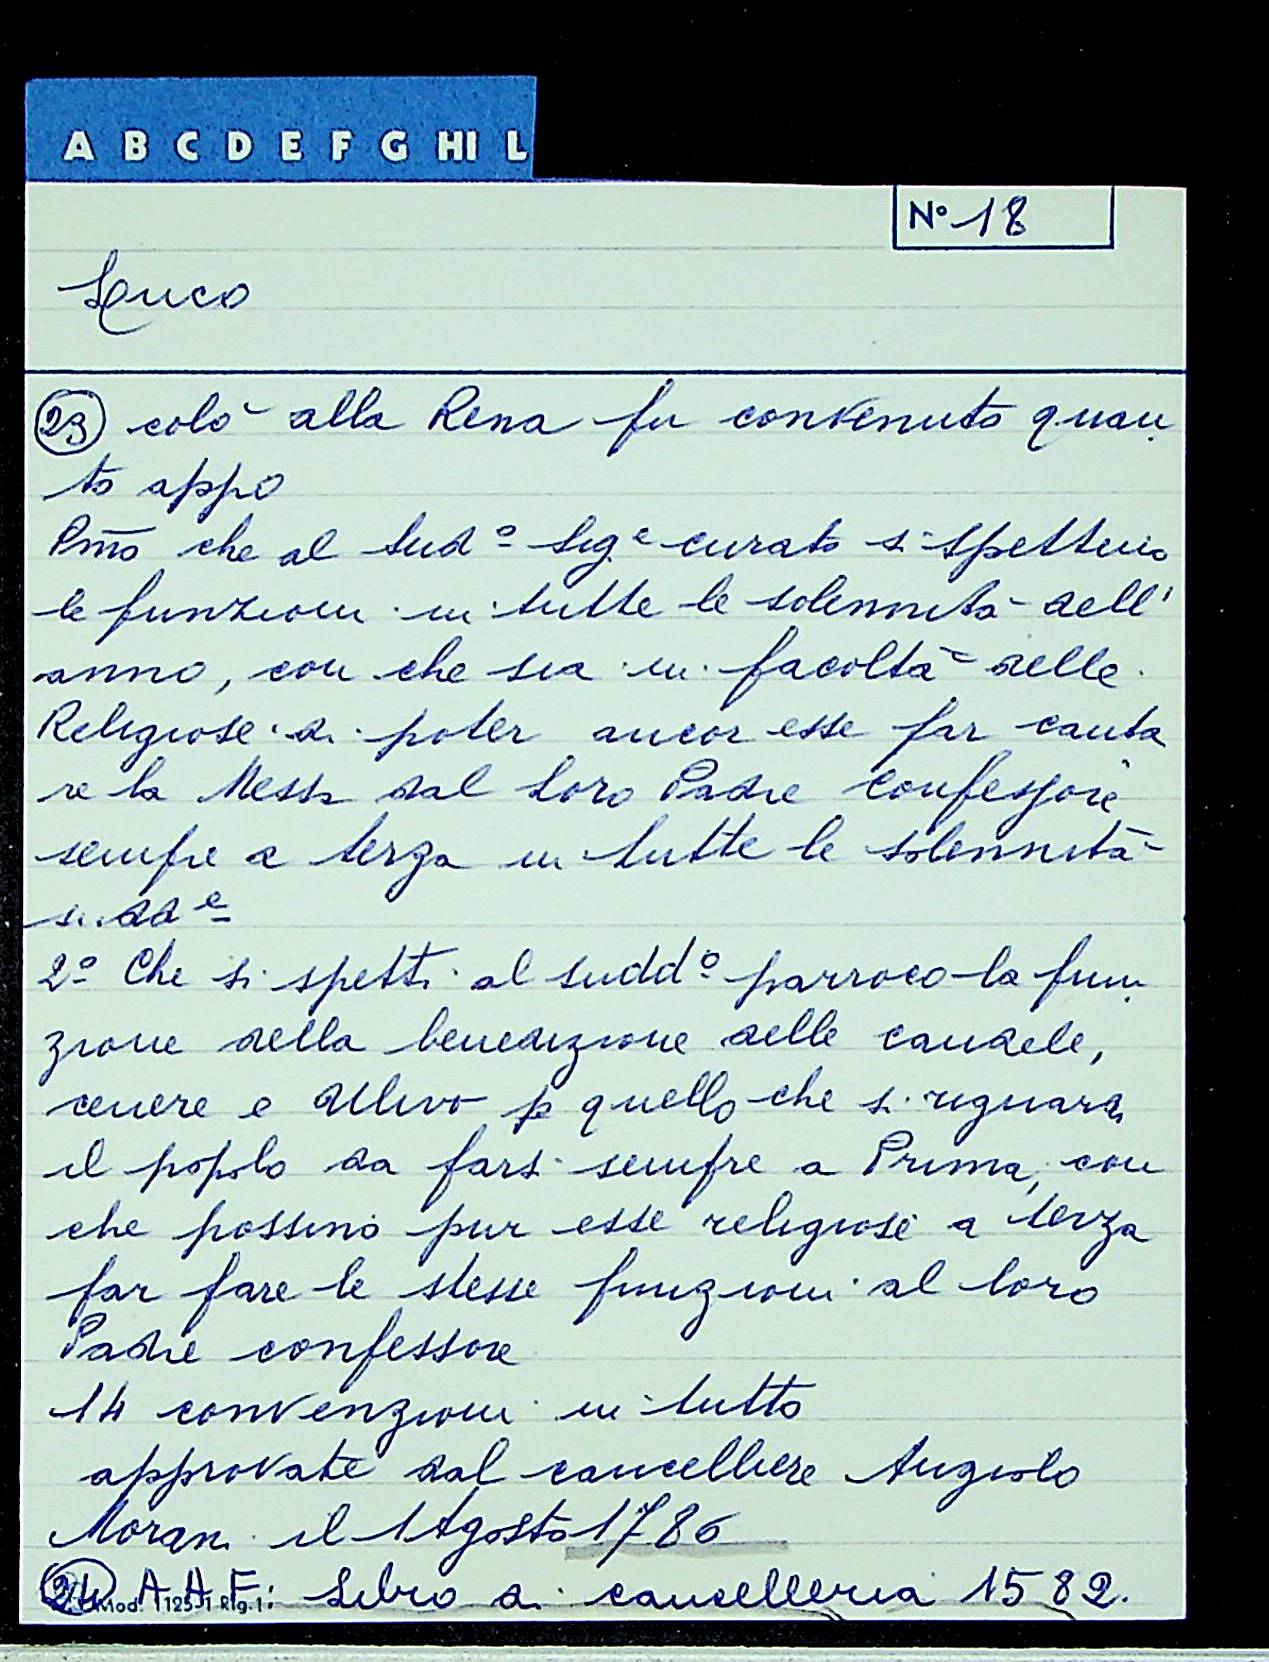 A B C D E F G HI L
N° 18
Luco
23 colò alla Rena fu convenuto quan
to appo
Pmo che al sud° Sigr curato si spettino
le funzioni in tutte le solennità dell'
anno, con che sia in facoltà delle
Religiose di poter ancor esse far canta
re la Messa dal loro Padre confessore
sempre a terza in tutte le solennità
sudde
2° Che si spetti al sudd° parroco la fun
zione della benedizione delle candele,
cenere e Ulivo p quello che si riguarda
il popolo da farsi sempre a Prima, con
che possino pur esse religiose a terza
far fare le stesse funzioni al loro
Padre confessore
14 convenzioni in tutto
approvate dal cancelliere Angiolo
Morani il 1 Agosto 1786
24 A.A.F: Libro di cancelleria 1582.
Mod. 1125/1 Rig.1